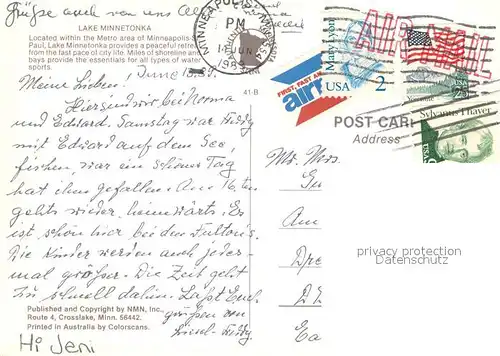 Grüße auch von uns
LAKE MINNETONKA
Located within the Metro area of Minneapolis-S
Paul, Lake Minnetonka provides a peaceful retrea
from the fast pace of city life. Miles of shoreline an
bays provide the essentials for all types of water
sports.
MINNEAPOLIS
PM
JUN
1989
AIR MAIL
Mary Lyon
USA
2
FIRST, FAST AN
air
Yosemite
Sylvanus Thayer
41-B
POST CAR
Address
Meine Lieben. June 13. 89.
Hiersend wir bei Norma
und Edward. Samstag war Freddy
mit Edward auf dem See,
fischen, war ein schöner Tag
hat ihm gefallen. Am 16. ten
gehts wieder heimwärts. Es
ist schön hier bei den Fultons.
Die Kinder werden auch jedes-
mal größer. Die Zeit geht
zu schnell dahin. Laßt Euch
grüßen von
Mr. Mrs.
Am
Dre
privacy protection
Datenschutz
Published and Copyright by NMN, Inc.,
Route 4, Crosslake, Minn. 56442.
Printed in Australia by Colorscans.
Hi Jeni